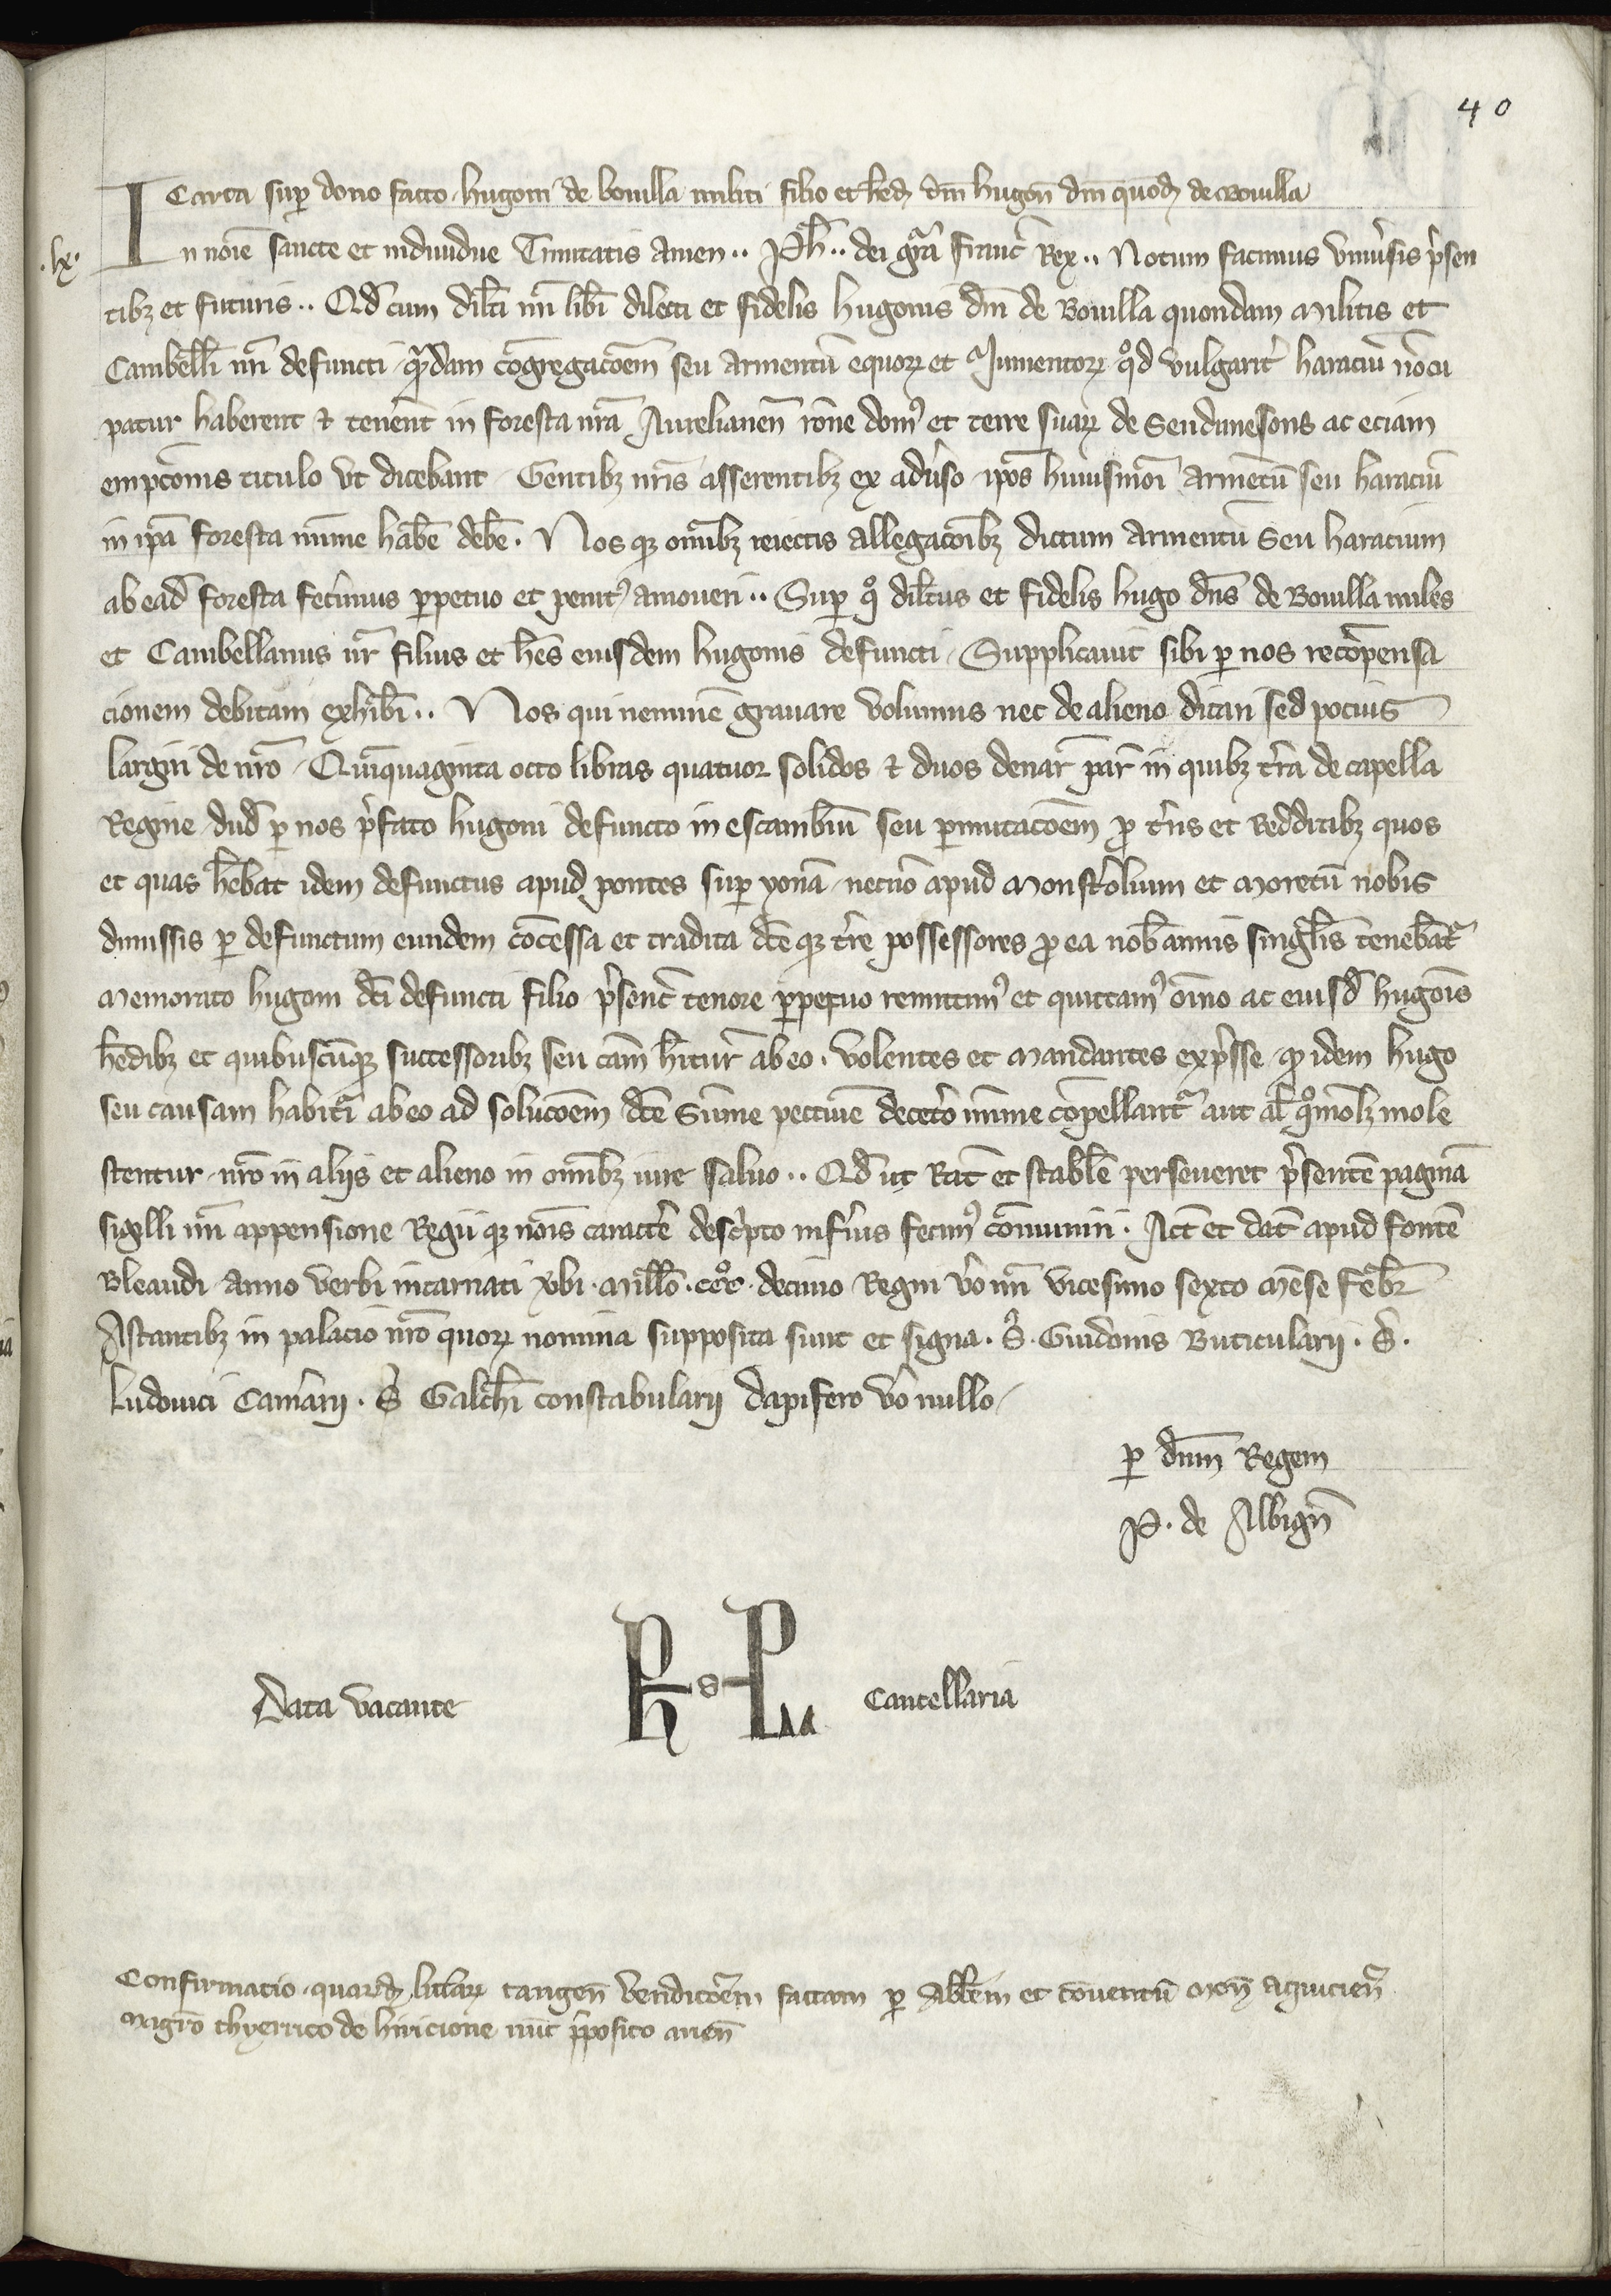 40
Carta sup dono facto hugoni de bouilla militi filio et hed dm̄ hugoñ dm̄ quōd de Bouilla
.lx.
In noīe sancte et indiuidue Trinitatis Amen .. Ph̄ .. dei grā Franc̄ Rex .. Notum facimus vniuersis p̄sen
tibꝫ et futuris .. Qd̄ cum dilc̄i nr̄i lib̄i dilecti et fidelis hugonis dn̄i de Bouilla quondam militis et
Cambell̄i nr̄i defuncti quādam cōgregacōem seu armentū equoꝝ et Jumentoꝝ qd̊ vulgarit̄ haraciū nōcu
patur haberent ⁊ tenēnt in foresta nr̄a Aurelianeñ rōne domꝰ et terre suaꝝ de Sendunesons ac eciam
empc̄onis titulo vt dicebant Gentibꝫ nr̄is asserentibꝫ ex adūso ip̄os huiusmōi armētū seu haraciū
in ip̄a foresta mīme hab̄e deb̄e . Nos qꝫ om̄ibꝫ reiectis allegacōibꝫ dictum armentū seu haracium
ab ead̄ foresta fec̄imus ꝑpetuo et penitꝰ amoueri .. Sup qͦ dilc̄tus et fidelis hugo dn̄s de Bouilla miles
et Cambellanus nr̄ filius et hēs eiusdem hugonis defuncti Supplicauit sibi ꝑ nos recōpensa
cionem debitam exhib̄i .. Nos qui neminē grauare volumus nec de alieno ditari sed pocius
largiri de nr̄o Quīquaginta octo libras quatuor solidos ⁊ duos denar̄ par̄ in quibꝫ t̄ra de capella
Regine dud̄ ꝑ nos p̄fato hugoni defuncto in escambiū seu ꝑmutacōem ꝓ t̄ris et Redditibꝫ quos
et quas hēbat idem defunctus apud pontes sup yonā necnō apud Monst̄olium et Moretū nobis
dimissis ꝑ defunctum eundem cōcessa et tradita dc̄e qꝫ t̄re possessores ꝓ ea nob̄ annis singl̄is tenebāt͛
Memorato hugoni dc̄i defuncti filio p̄senc̄ tenore ꝑpetuo remittimꝰ et quittamꝰ oīno ac eiusd̄ hugōis
hēdibꝫ et quibuscūqꝫ successoribꝫ seu cām hītur̄ ab eo . Volentes et Mandantes exp̄sse qͩ idem hugo
seu causam habitr̄i ab eo ad solucōem dc̄e Sūme peccuīe decet̄o mīme cōpellant͛ aut al̄ qͦmolꝫ mole
stentur nr̄o in aliis et alieno in om̄ibꝫ iure saluo .. Qd̄ ut Rat̄ et stabl̄e perseueret p̄sentē paginā
sigilli nr̄i appensione Regii qꝫ nōis caractē desc̄pto inf̄ius fecimꝰ cōmuniri . Act̄ et dat̄ apud fontē
Bleaudi Anno verbi incarnati Mill̄o . ccͦc . decimo Regni v̄o nr̄i vicesimo sexto Mēse Febr̄
Astantibꝫ in palacio nr̄o quoꝝ nomina supposita sunt et signa . S̄ . Guidonis Buticularii . S̄ .
Ludouici Camārii . S̄ Galch̄i constabularii dapifero v̄o nullo
ꝑ dn̄m Regem
P . de Albign̄
Data vacante
Cancellaria
Confirmatio quard̄ litt̄aꝝ tangeñ vendicōem factam ꝑ Abb̄em et cōuentū Moñ aquicieñ
Magr̄o thyerrico de hiricione nūc p̄posito arieñ